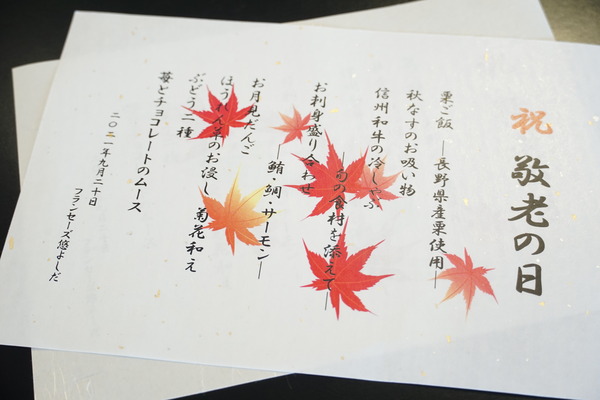 祝 敬老の日
栗ご飯 ―長野県産栗使用―
秋なすのお吸い物
信州和牛の冷しゃぶ
―旬の食材を添えて―
お刺身盛り合わせ
―鮪・鯛・サーモン―
お月見だんご
ほうれん草のお浸し 菊花和え
ぶどう二種
苺とチョコレートのムース
二〇二一年九月二十日
フランセーズ悠よしだ